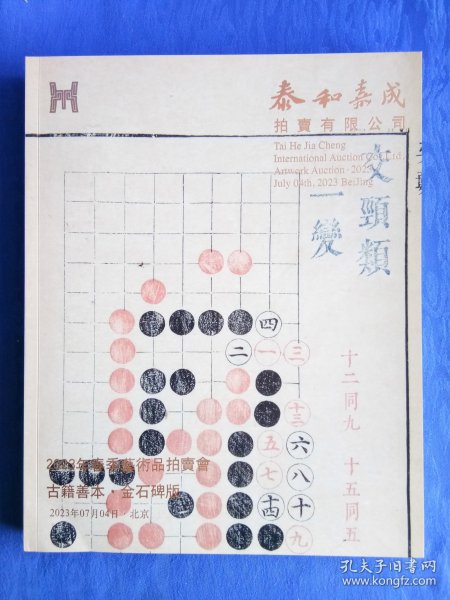 泰和嘉成
拍賣有限公司
Tai He Jia Cheng
International Auction Co., Ltd.
Artwork Auction · 2023
July 04th, 2023 BeiJing
交頸類
一變
四
二 一 三
十三
五 六
七 八
十四 十
九
十二同九 十五同五
2023年春季藝術品拍賣會
古籍善本·金石碑版
2023年07月04日·北京
孔夫子旧书网
www.kongfz.com